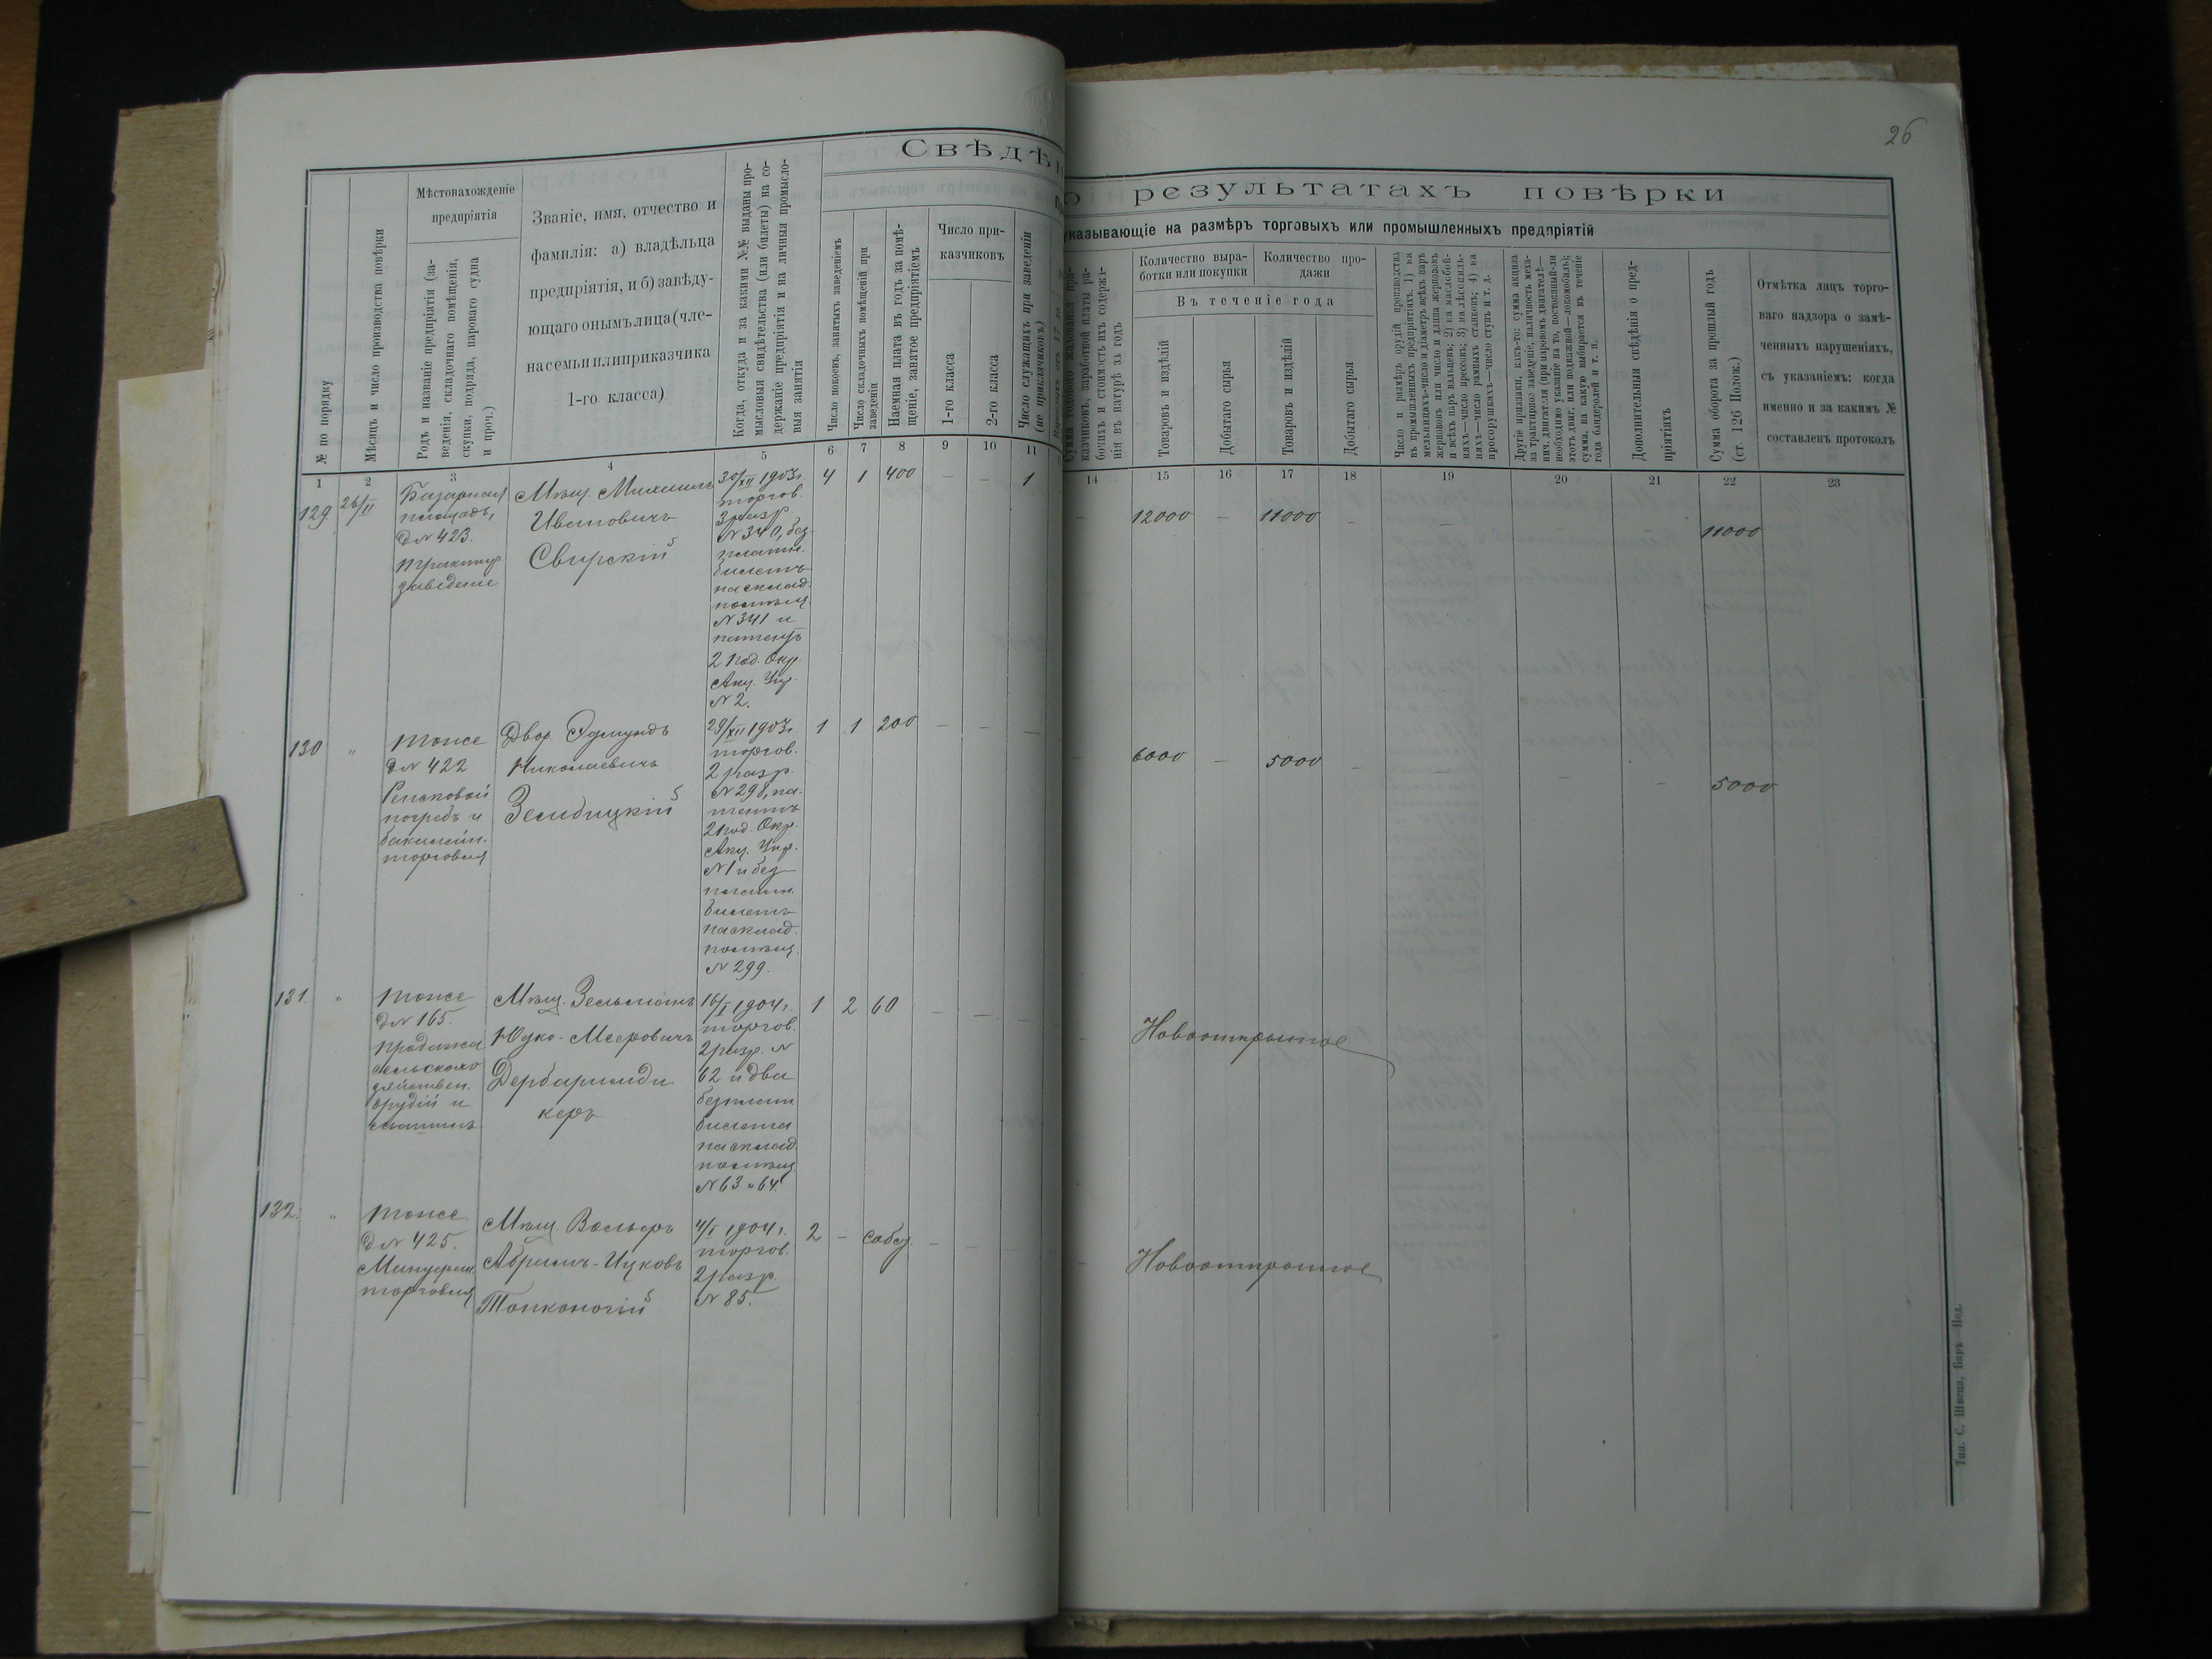 26
Свѣдѣн
о результатахъ повѣрки
указывающіе на размѣръ торговыхъ или промышленныхъ предпріятій
№ по порядку
Мѣсяцъ и число производства повѣрки
Мѣстонахожденіе
предпріятія
Родъ и названіе предпріятія (за-
веденія, складочнаго помѣщенія,
скупки, подряда, пароваго судна
и проч.)
Званіе, имя, отчество и
фамилія: а) владѣльца
предпріятія, и б) завѣду-
ющаго онымъ лица (чле-
на семьи или приказчика
1-го класса)
Когда, откуда и за какими №№ выданы про-
мысловыя свидѣтельства (или билеты) на со-
держаніе предпріятія и на личныя промысло-
выя занятія
Число покоевъ, занятыхъ заведеніемъ
Число складочныхъ помѣщеній при
заведеніи
Наемная плата въ годъ за помѣ-
щеніе, занятое предпріятіемъ
Число при-
казчиковъ
1-го класса
2-го класса
Число служащихъ при заведеніи
(не приказчиковъ)
Сумма годового жалованья при-
казчиковъ, заработной платы ра-
бочихъ и стоимость ихъ содержа-
нія въ натурѣ за годъ
Количество выра-
ботки или покупки
Количество про-
дажи
Въ теченіе года
Товаровъ и издѣлій
Добытаго сырья
Товаровъ и издѣлій
Добытаго сырья
Число и размѣръ орудій производства
въ промышленныхъ предпріятіяхъ: 1) на
мельницахъ-число и діаметръ всѣхъ паръ
жернововъ или число и длина жернововъ
и всѣхъ паръ вальцевъ; 2) на маслобой-
няхъ—число прессовъ; 3) на лѣсопиль-
няхъ—число рамныхъ станковъ; 4) на
просорушкахъ—число ступъ и т. д.
Другіе признаки, какъ-то: сумма акциза
за трактирное заведеніе, наличность меха-
нич. двигателя (при паровомъ двигателѣ—
необходимо указаніе на то, постоянный-ли
этотъ двиг. или подвижной—локомобиль);
сумма, на какую выбирается въ теченіе
года бандеролей и т. п.
Дополнительныя свѣдѣнія о пред-
пріятіяхъ
Сумма оборота за прошлый годъ
(ст. 126 Полож.)
Отмѣтка лицъ торго-
ваго надзора о замѣ-
ченныхъ нарушеніяхъ,
съ указаніемъ: когда
именно и за какимъ №
составленъ протоколъ
1 2 3 4 5 6 7 8 9 10 11
14 15 16 17 18 19 20 21 22 23
129
26/II
Базарная
площадь,
д№ 423.
трактир
заведеніе
Мѣщ. Михаилъ
Ивановичъ
Свирскій
30/XII 1903г.
торгов.
3 разр
№ 340, без-
платн.
билетъ
на склад.
помѣщ.
№ 341 и
патентъ
2 под. Окр.
Акц. Упр.
№ 2.
4 1 400 – – 1
– 12000 – 11000 – – – – 11000
130 "
тоже
д№ 422
Ренсковой
погребъ и
бакалейн.
торговля
Двор. Эдмундъ
Николаевичъ
29/XII 1903г.
торгов.
2 разр.
№ 298, па-
тентъ
2 под. Окр.
Акц. Упр.
№ 1 и без-
платн.
билетъ
на склад.
помѣщ.
№ 299.
1 1 200 – – –
– 6000 – 5000 – – – – 5000
131. "
тоже
д№ 165.
продажа
сельскохо
зяйствен.
орудій и
машинъ
Мѣщ. Зельманъ
Юдко-Мееровичъ
Дербаримди
керъ
16/I 1904г.
торгов.
2 разр. №
62 и два
безплатн
билета
на склад
помѣщ.
№ 63 и 64.
1 2 60 – – –
– Новооткрытое
132. "
тоже
д№ 425.
Мануфак.
торговля
Мѣщ. Вольфъ
Абрамъ-Ицковъ
Тонконогій
4/I 1904г.
торгов.
2 разр.
№ 85.
2 – собст. – – –
– Новооткрытое
Тип. С. Швеца, Баръ Под.